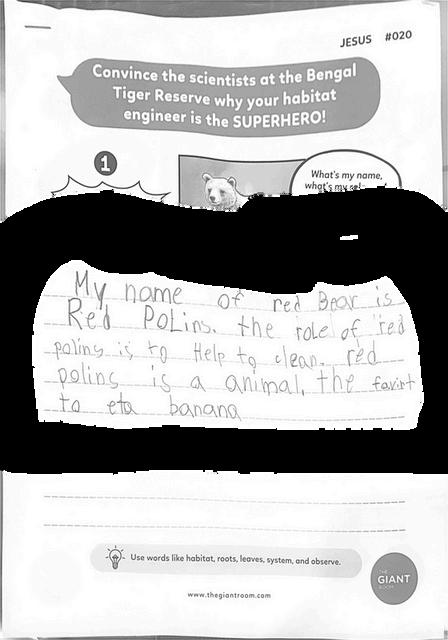 JESUS #020
Convince the scientists at the Bengal
Tiger Reserve why your habitat
engineer is the SUPERHERO!
1
What's my name,
what's my
My name of red Bear is
Red Polins. the role of red
polins is to Help to clean. red
polins is a animal. the favirt
to eta banana
Use words like habitat, roots, leaves, system, and observe.
THE
GIANT
ROOM
www.thegiantroom.com